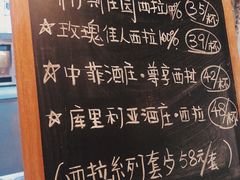 佳园西拉100% 35/杯
★玫瑰佳人西拉100% 39/杯
★中菲酒庄·尊享西拉 42/杯
★库里利亚酒庄·西拉 48/杯
(西拉系列套餐58元/套)